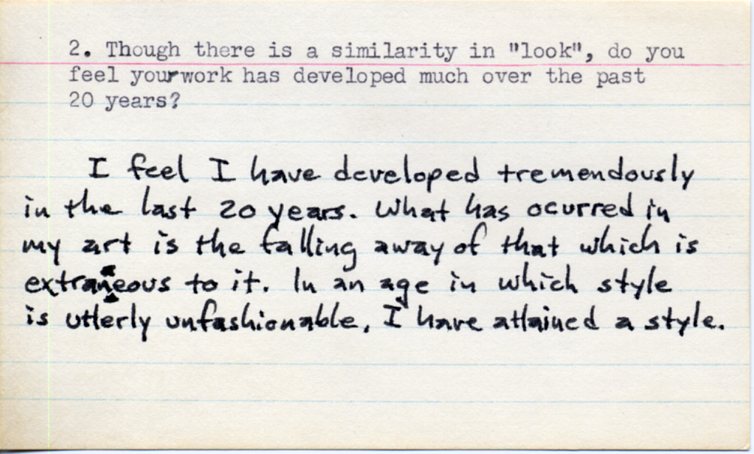 2. Though there is a similarity in "look", do you
feel your work has developed much over the past
20 years?
I feel I have developed tremendously
in the last 20 years. What has ocurred in
my art is the falling away of that which is
extraneous to it. In an age in which style
is utterly unfashionable, I have attained a style.